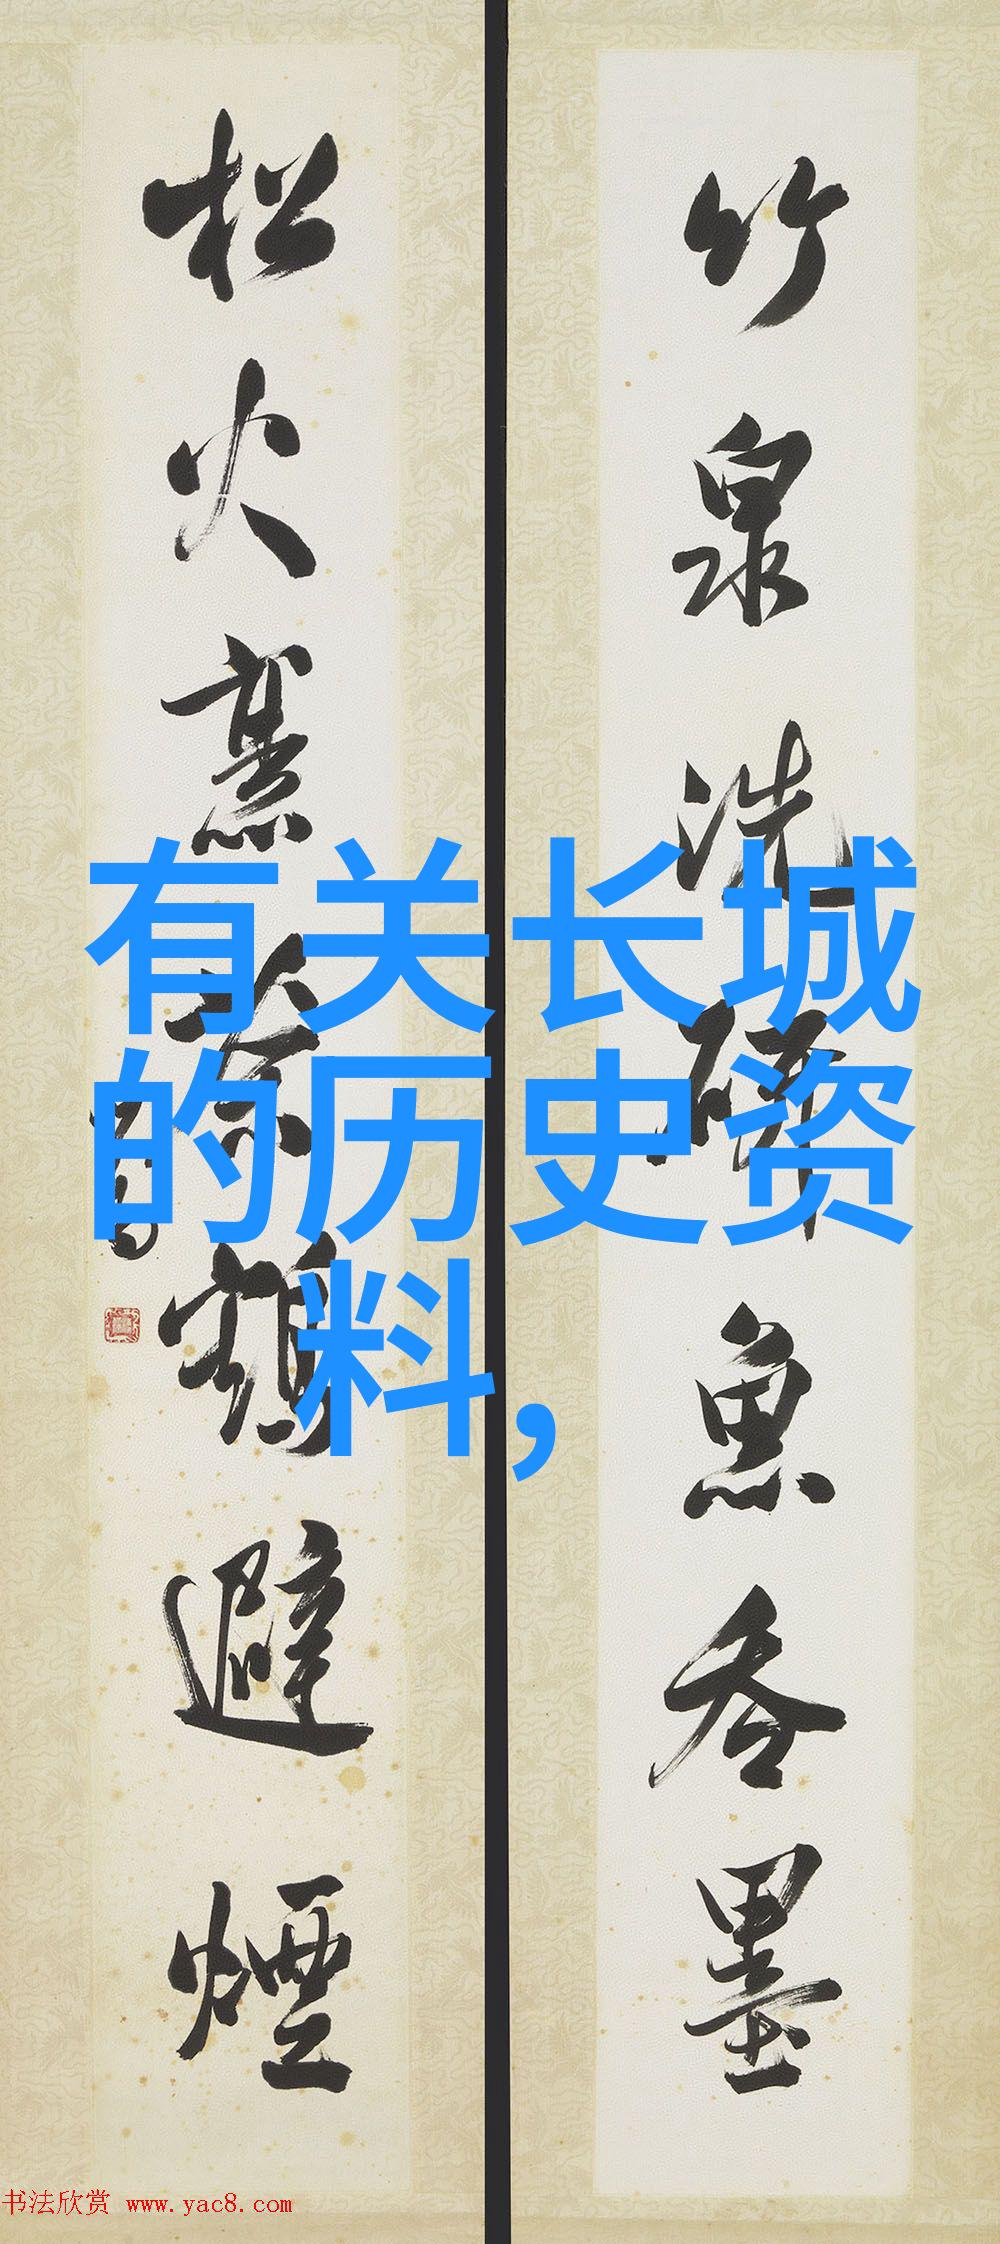 竹泉洗研魚吞墨
松火熏茶鶴避煙
有关长城
的历史资
料，
书法欣赏 www.yac8.com